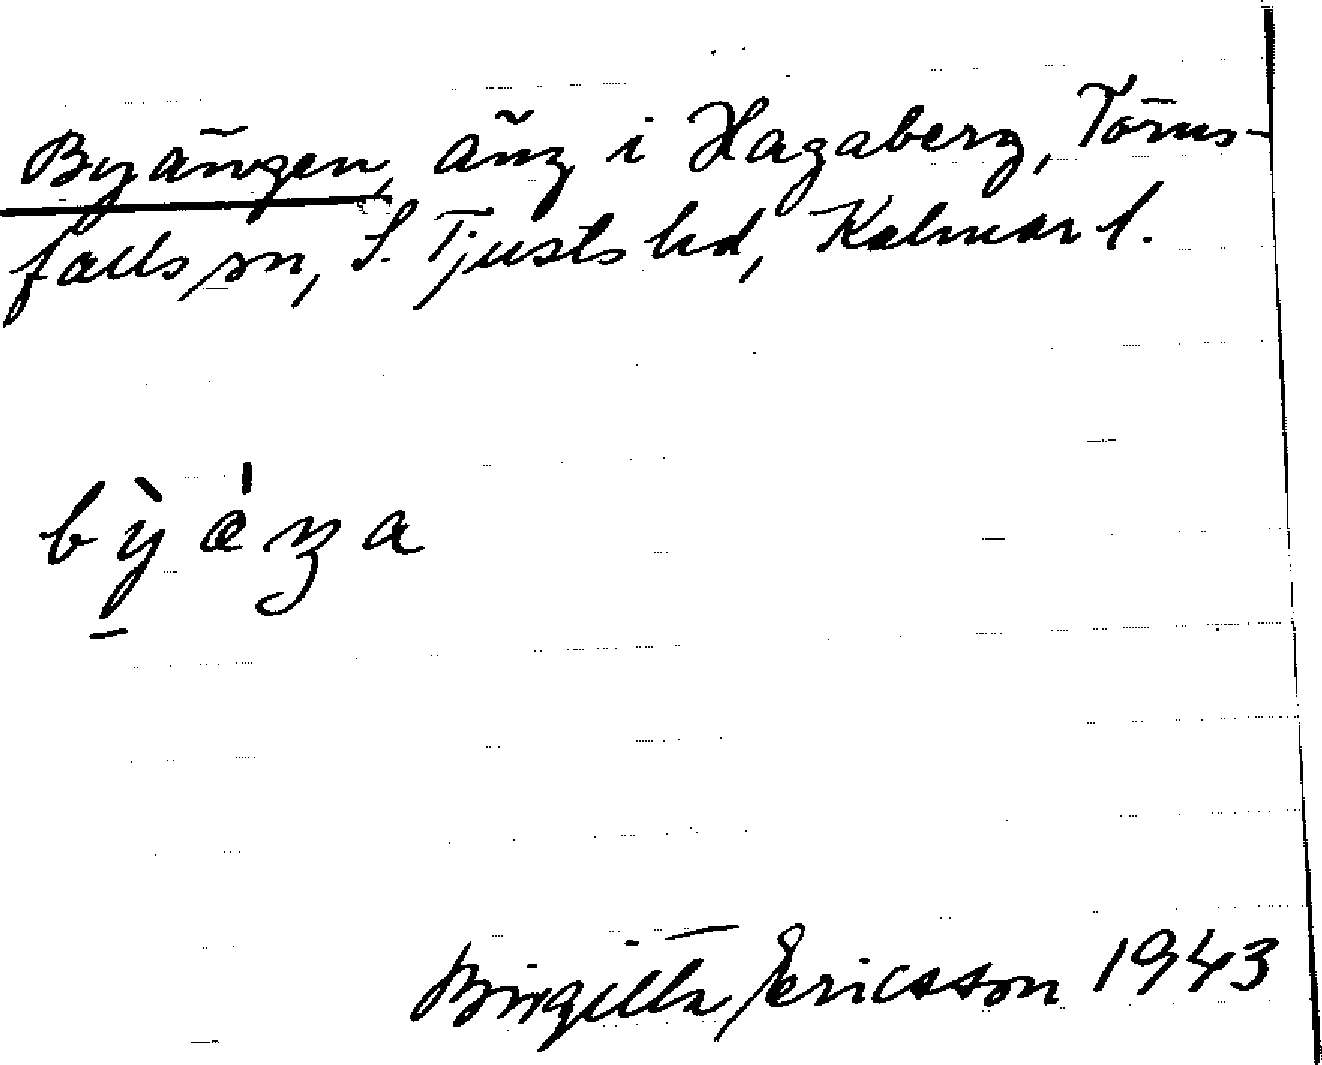 Byängen, äng i Hagaberg, Törns-
falls sn, S. Tjusts hd, Kalmar l.
bỳǽŋa
Birgitta Ericsson 1943